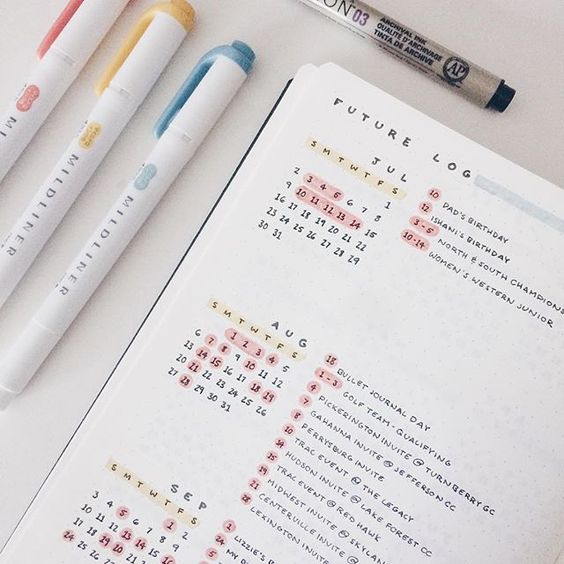 MILDLINER
MILDLINER
MILDLINER
ON 03
ARCHIVAL INK
QUALITÉ D'ARCHIVAGE
TINTA DE ARCHIVE
AP
FUTURE LOG
JUL
S M T W T F S
1
2 3 4 5 6 7 8
9 10 11 12 13 14 15
16 17 18 19 20 21 22
23 24 25 26 27 28 29
30 31
10 DAD'S BIRTHDAY
12 ISHANI'S BIRTHDAY
3-5 NORTH & SOUTH CHAMPIONS
10-14 WOMEN'S WESTERN JUNIOR
AUG
S M T W T F S
1 2 3 4 5
6 7 8 9 10 11 12
13 14 15 16 17 18 19
20 21 22 23 24 25 26
27 28 29 30 31
18 BULLET JOURNAL DAY
1-3 GOLF TEAM - QUALIFYING
4 PICKERINGTON INVITE @ TURNBERRY GC
7 GAHANNA INVITE @ JEFFERSON CC
8 PERRYSBURG INVITE
10 TRAC EVENT @ THE LEGACY
14 HUDSON INVITE @ LAKE FOREST CC
15 TRAC EVENT @ RED HAWK
19 MIDWEST INVITE @ SKYLAN
21 CENTERVILLE INVITE @
28 LEXINGTON INVITE
SEP
S M T W T F S
1 2
3 4 5 6 7 8 9
10 11 12 13 14 15
17 18 19 20 21
24
1 LIZZIE'S B
24 MY